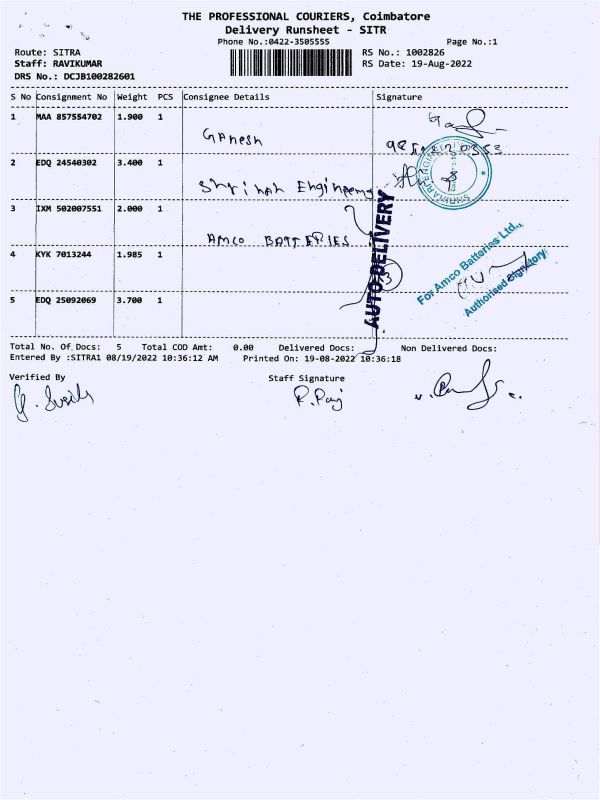 THE PROFESSIONAL COURIERS, Coimbatore
Delivery Runsheet - SITR
Phone No.:0422-3505555 Page No.:1
Route: SITRA RS No.: 1002826
Staff: RAVIKUMAR RS Date: 19-Aug-2022
DRS No.: DCJB100282601
S No Consignment No Weight PCS Consignee Details Signature
1 MAA 857554702 1.900 1
Ganesh
2 EDQ 24540302 3.400 1
3 IXM 502007551 2.000 1
AMCO BATTERIES
4 KYK 7013244 1.985 1
AUTO DELIVERY
For Amco Batteries Ltd.,
Authorised Signatory
5 EDQ 25092069 3.700 1
Total No. Of Docs: 5 Total COD Amt: 0.00 Delivered Docs: Non Delivered Docs:
Entered By :SITRA1 08/19/2022 10:36:12 AM Printed On: 19-08-2022 10:36:18
Verified By Staff Signature